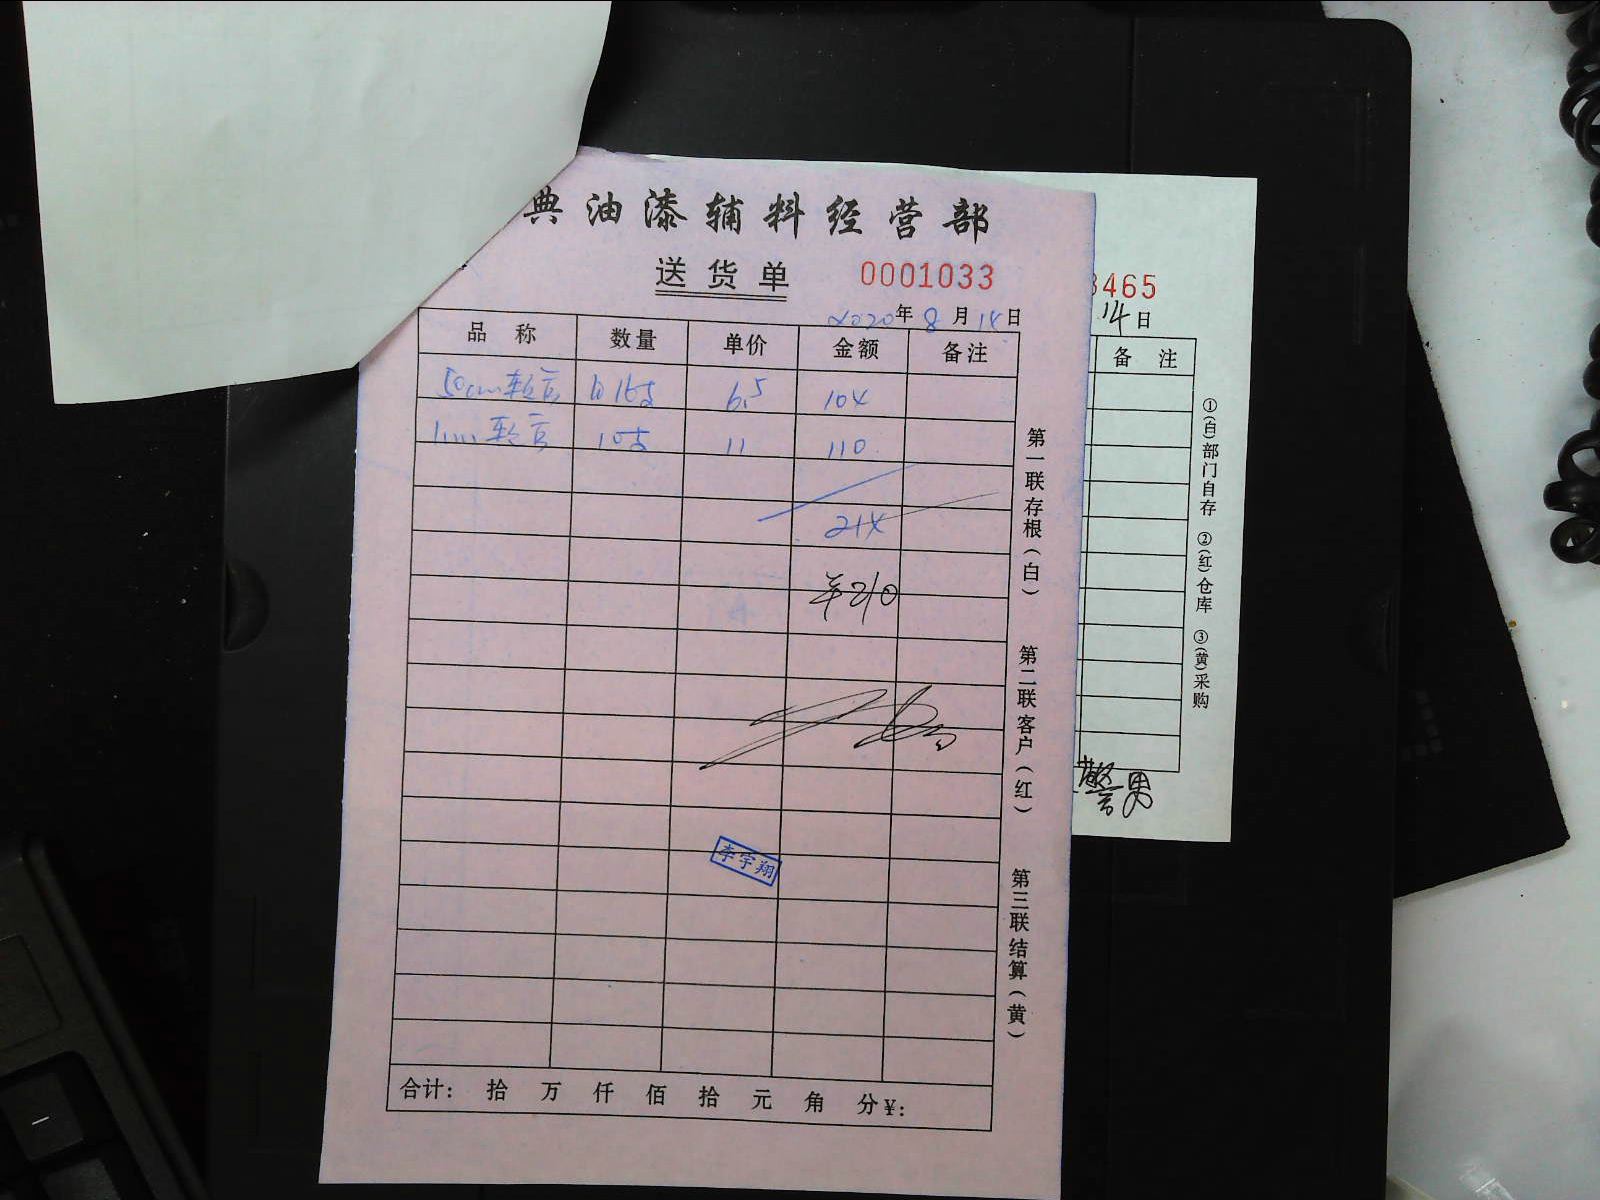 典油漆辅料经营部
送货单 0001033
2020年8月14日
品称 数量 单价 金额 备注
50cm软管 16支 6.5 104
1m软管 10支 11 110
214
¥210
李宇翔
合计: 拾 万 仟 佰 拾 元 角 分¥:
第一联存根(白)
第二联客户(红)
第三联结算(黄)
3465
14日
备注
①(白)部门自存 ②(红)仓库 ③(黄)采购